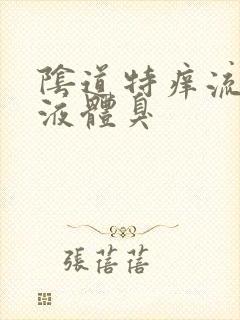 陰道特痒流
液體臭
張蓓蓓